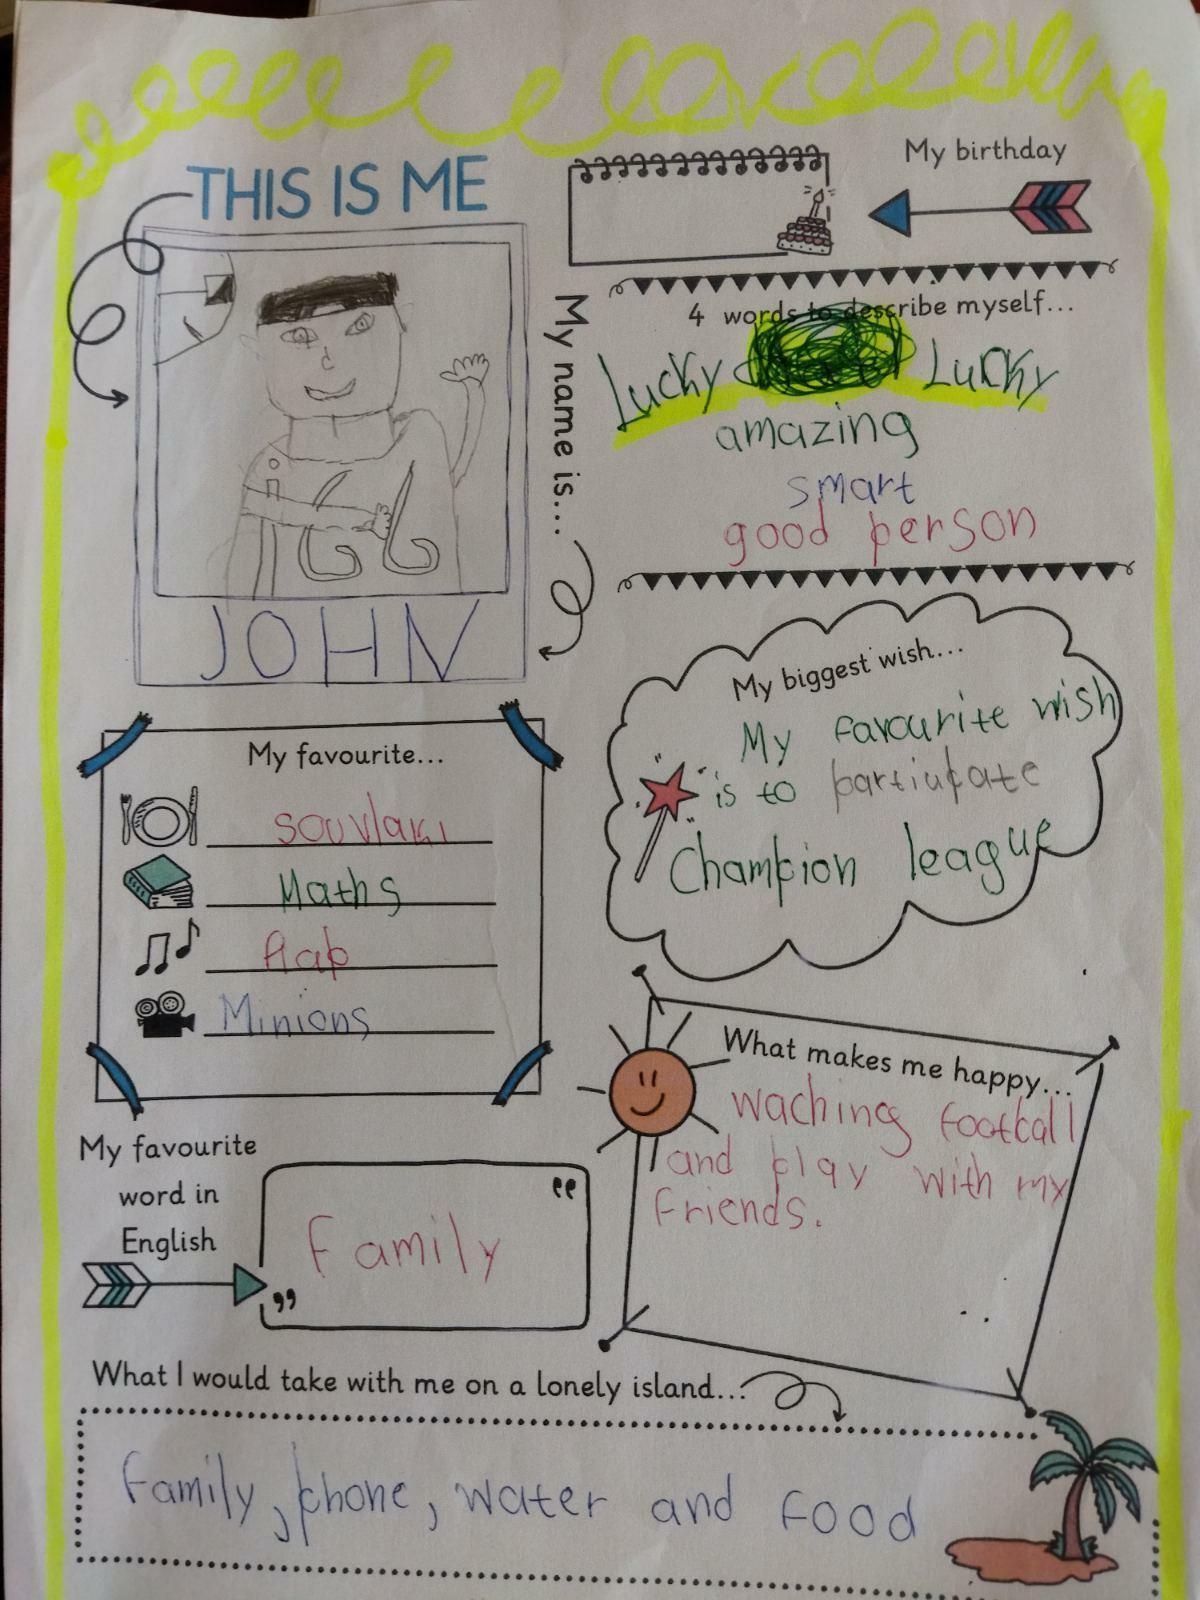 THIS IS ME
My birthday
My name is...
JOHN
4 words to describe myself...
Lucky Lucky
amazing
smart
good person
My biggest wish...
My favourite wish
is to partiupate
Champion league
My favourite...
souvlaki
Maths
Rap
Minions
What makes me happy...
waching football
and play with my
friends.
My favourite
word in
English
"
Family
"
What I would take with me on a lonely island...
family, phone, water and food